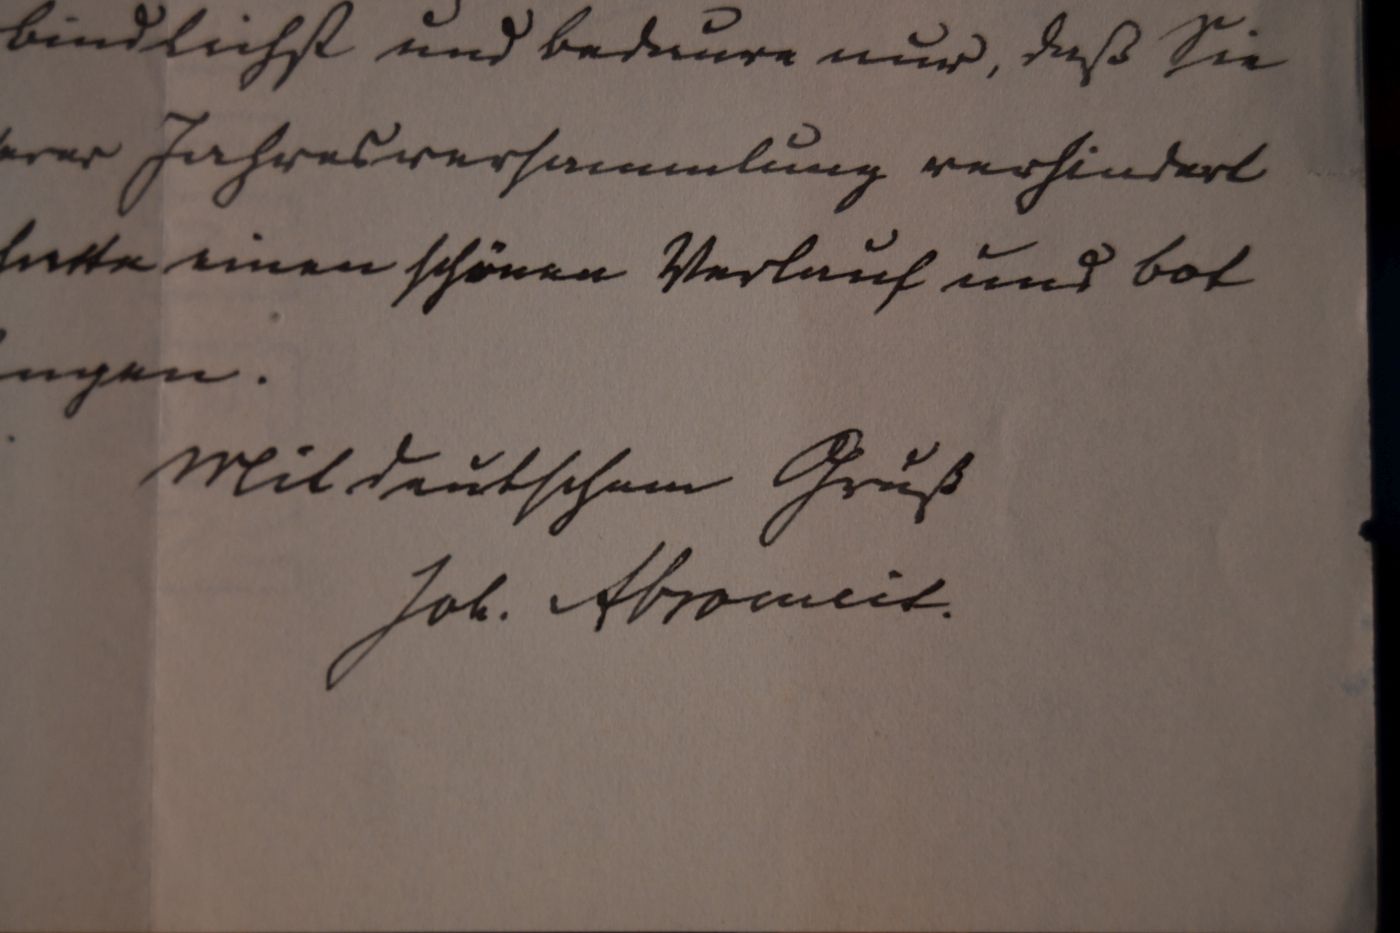 bindlichst und bedaure nur, daß Sie
erer Jahresversammlung verhindert
hatte einen schönen Verlauf und bot
ungen.
Mit deutschem Gruß
Joh. Abromeit.